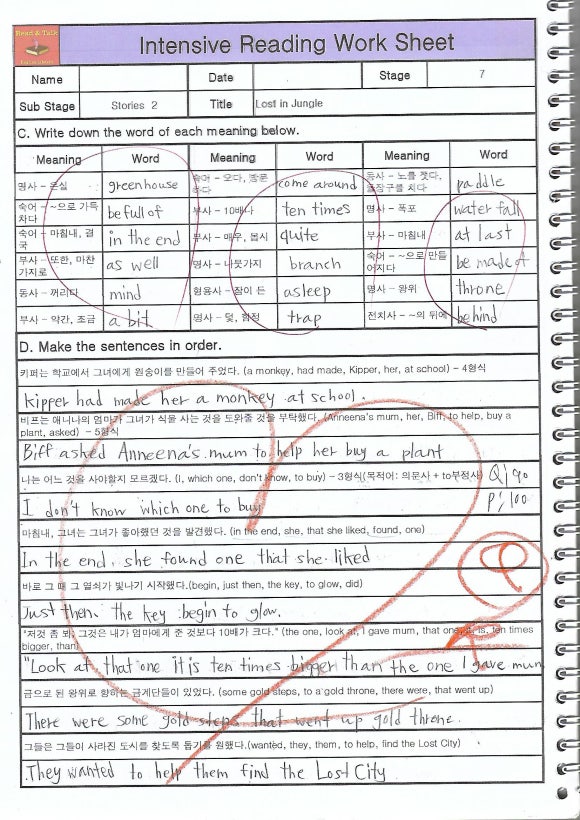 Read & Talk
Intensive Reading Work Sheet
Name Date Stage 7
Sub Stage Stories 2 Title Lost in Jungle
C. Write down the word of each meaning below.
Meaning Word Meaning Word Meaning Word
명사 – 온실 greenhouse 숙어 – 오다, 방문하다 come around 동사 – 노를 젓다, 물장구를 치다 paddle
숙어 – ~으로 가득 차다 be full of 부사 – 10배나 ten times 명사 – 폭포 water fall
숙어 – 마침내, 결국 in the end 부사 – 매우, 몹시 quite 부사 – 마침내 at last
부사 – 또한, 마찬가지로 as well 명사 – 나뭇가지 branch 숙어 – ~으로 만들어지다 be made of
동사 – 꺼리다 mind 형용사 – 잠이 든 asleep 명사 – 왕위 throne
부사 – 약간, 조금 a bit 명사 – 덫, 함정 trap 전치사 – ~의 뒤에 behind
D. Make the sentences in order.
키퍼는 학교에서 그녀에게 원숭이를 만들어 주었다. (a monkey, had made, Kipper, her, at school) – 4형식
kipper had made her a monkey at school.
비프는 애니나의 엄마가 그녀가 식물 사는 것을 도와줄 것을 부탁했다. (Anneena's mum, her, Biff, to help, buy a
plant, asked) – 5형식
Biff asked Anneena's mum to help her buy a plant
나는 어느 것을 사야할지 모르겠다. (I, which one, don't know, to buy) – 3형식(목적어: 의문사 + to부정사) Q/90
I don't know which one to buy P/100
마침내, 그녀는 그녀가 좋아했던 것을 발견했다. (in the end, she, that she liked, found, one)
In the end, she found one that she liked
바로 그 때 그 열쇠가 빛나기 시작했다.(begin, just then, the key, to glow, did)
Just then, the key begin to glow.
"저것 좀 봐, 그것은 내가 엄마에게 준 것보다 10배가 크다." (the one, look at, I gave mum, that one, it, is, ten times
bigger, than)
"Look at that one it is ten times bigger than the one I gave mum
금으로 된 왕위로 향하는 금계단들이 있었다. (some gold steps, to a gold throne, there were, that went up)
There were some gold steps that went up gold throne.
그들은 그들이 사라진 도시를 찾도록 돕기를 원했다.(wanted, they, them, to help, find the Lost City)
They wanted to help them find the Lost City